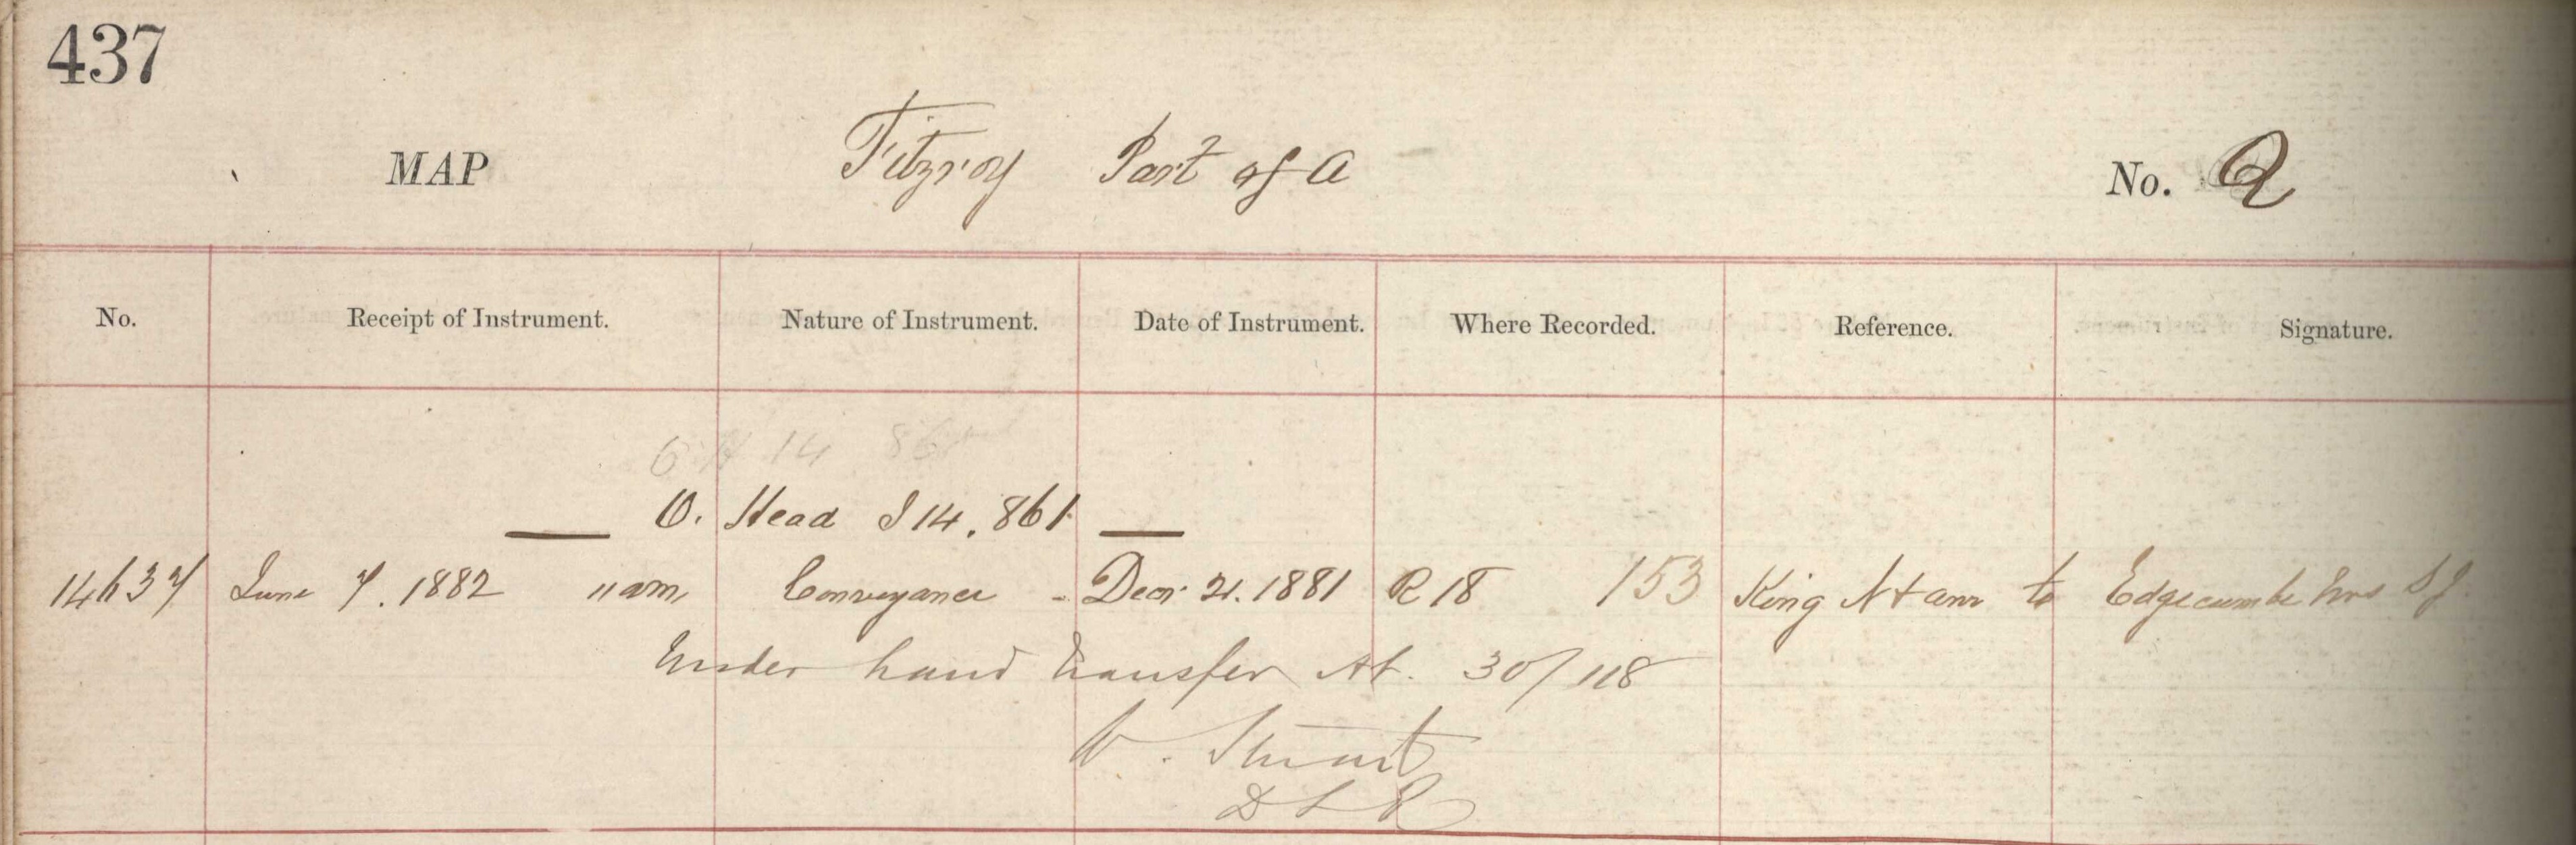 437
MAP Fitzroy Part of A No. Q
No. Receipt of Instrument. Nature of Instrument. Date of Instrument. Where Recorded. Reference. Signature.
14 861
O. Head I 14. 861
14637 June 7. 1882 11 am Conveyance - Decr. 21. 1881 R 18 153 King N & anr to Edgecumbe
Under hand transfer At. 30/118
W. Stuart
D L R